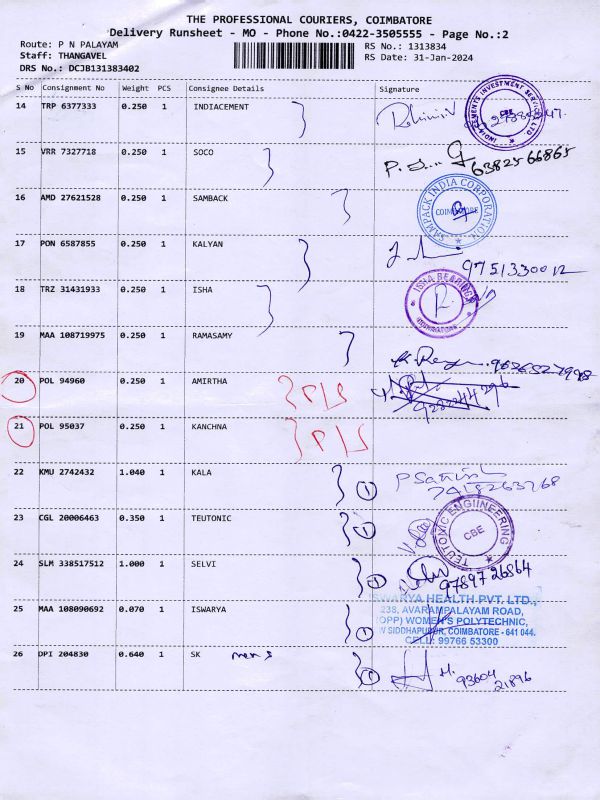 THE PROFESSIONAL COURIERS, COIMBATORE
Delivery Runsheet - MO - Phone No.:0422-3505555 - Page No.:2
Route: P N PALAYAM
RS No.: 1313834
Staff: THANGAVEL
RS Date: 31-Jan-2024
DRS No.: DCJB131383402
S No Consignment No Weight PCS Consignee Details Signature
14 TRP 6377333 0.250 1 INDIACEMENT
15 VRR 7327718 0.250 1 SOCO
6382566865
16 AMD 27621528 0.250 1 SAMBACK
SAMPACK INDIA CORPORATION
COIMBATORE
17 PON 6587855 0.250 1 KALYAN
9751330012
18 TRZ 31431933 0.250 1 ISHA
ISHA BEARINGS
COIMBATORE
19 MAA 108719975 0.250 1 RAMASAMY
20 POL 94960 0.250 1 AMIRTHA
P/S
21 POL 95037 0.250 1 KANCHNA
P/S
22 KMU 2742432 1.040 1 KALA
1
7418263768
23 CGL 20006463 0.350 1 TEUTONIC
1
TEUTONIC ENGIINEERING
CBE
24 SLM 338517512 1.000 1 SELVI
1
9789726864
25 MAA 108090692 0.070 1 ISWARYA
1
SWARYA HEALTH PVT. LTD.,
238, AVARAMPALAYAM ROAD,
OPP) WOMEN'S POLYTECHNIC,
W SIDDHAPUDUR, COIMBATORE - 641 044.
CELL: 99766 53300
26 DPI 204830 0.640 1 SK mens
1
93604
21896